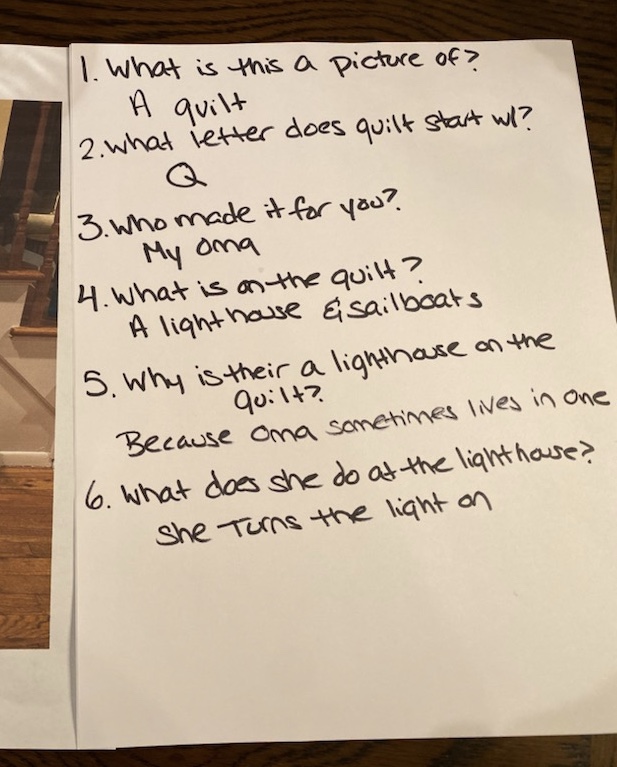 1. What is this a picture of?
A quilt
2. What letter does quilt start w/?
Q
3. Who made it for you?
My Oma
4. What is on the quilt?
A lighthouse & sailboats
5. Why is their a lighthouse on the
quilt?
Because Oma sometimes lives in one
6. What does she do at the lighthouse?
She Turns the light on